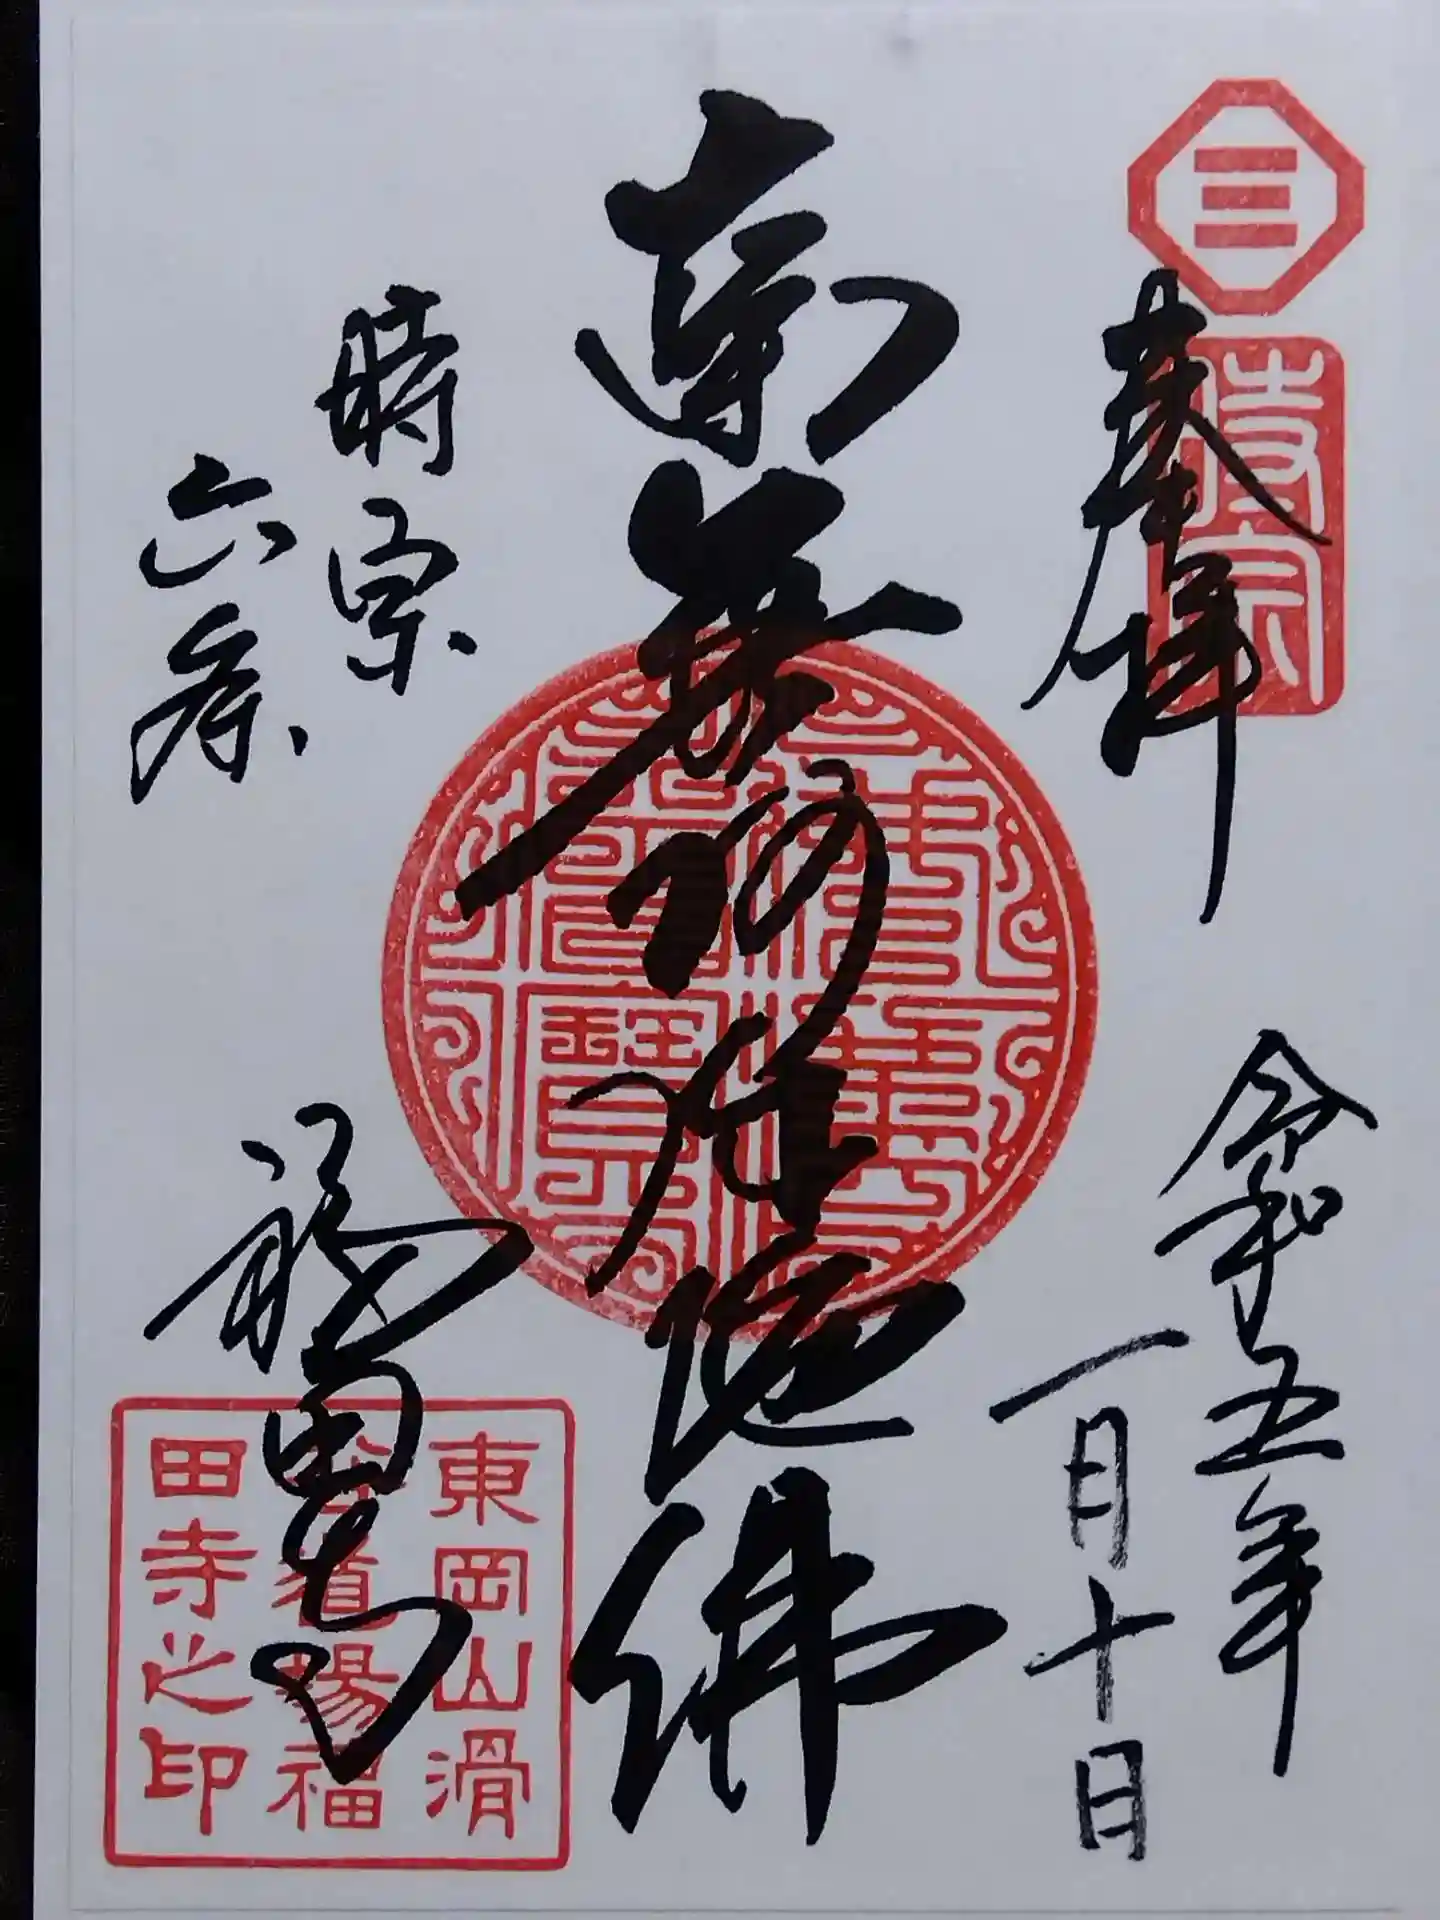 奉拝
時宗
令和五年
一月十日
南無阿弥陀佛
時宗
六条
福田寺
東岡山滑
谷道場福
田寺之印